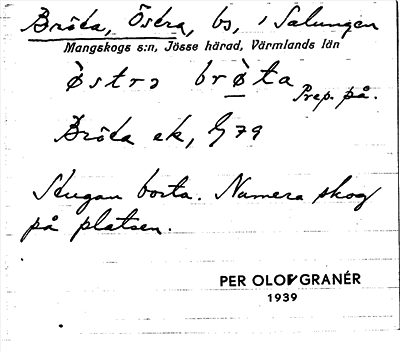 Bröta, Östra, bs, i Salungen
Mangskogs s:n, Jösse härad, Värmlands län
östrɔ brö̀ta Prep. på.
Bröta ek, G79
Stugan borta. Numera skog
på platsen.
PER OLOF GRANÉR
1939